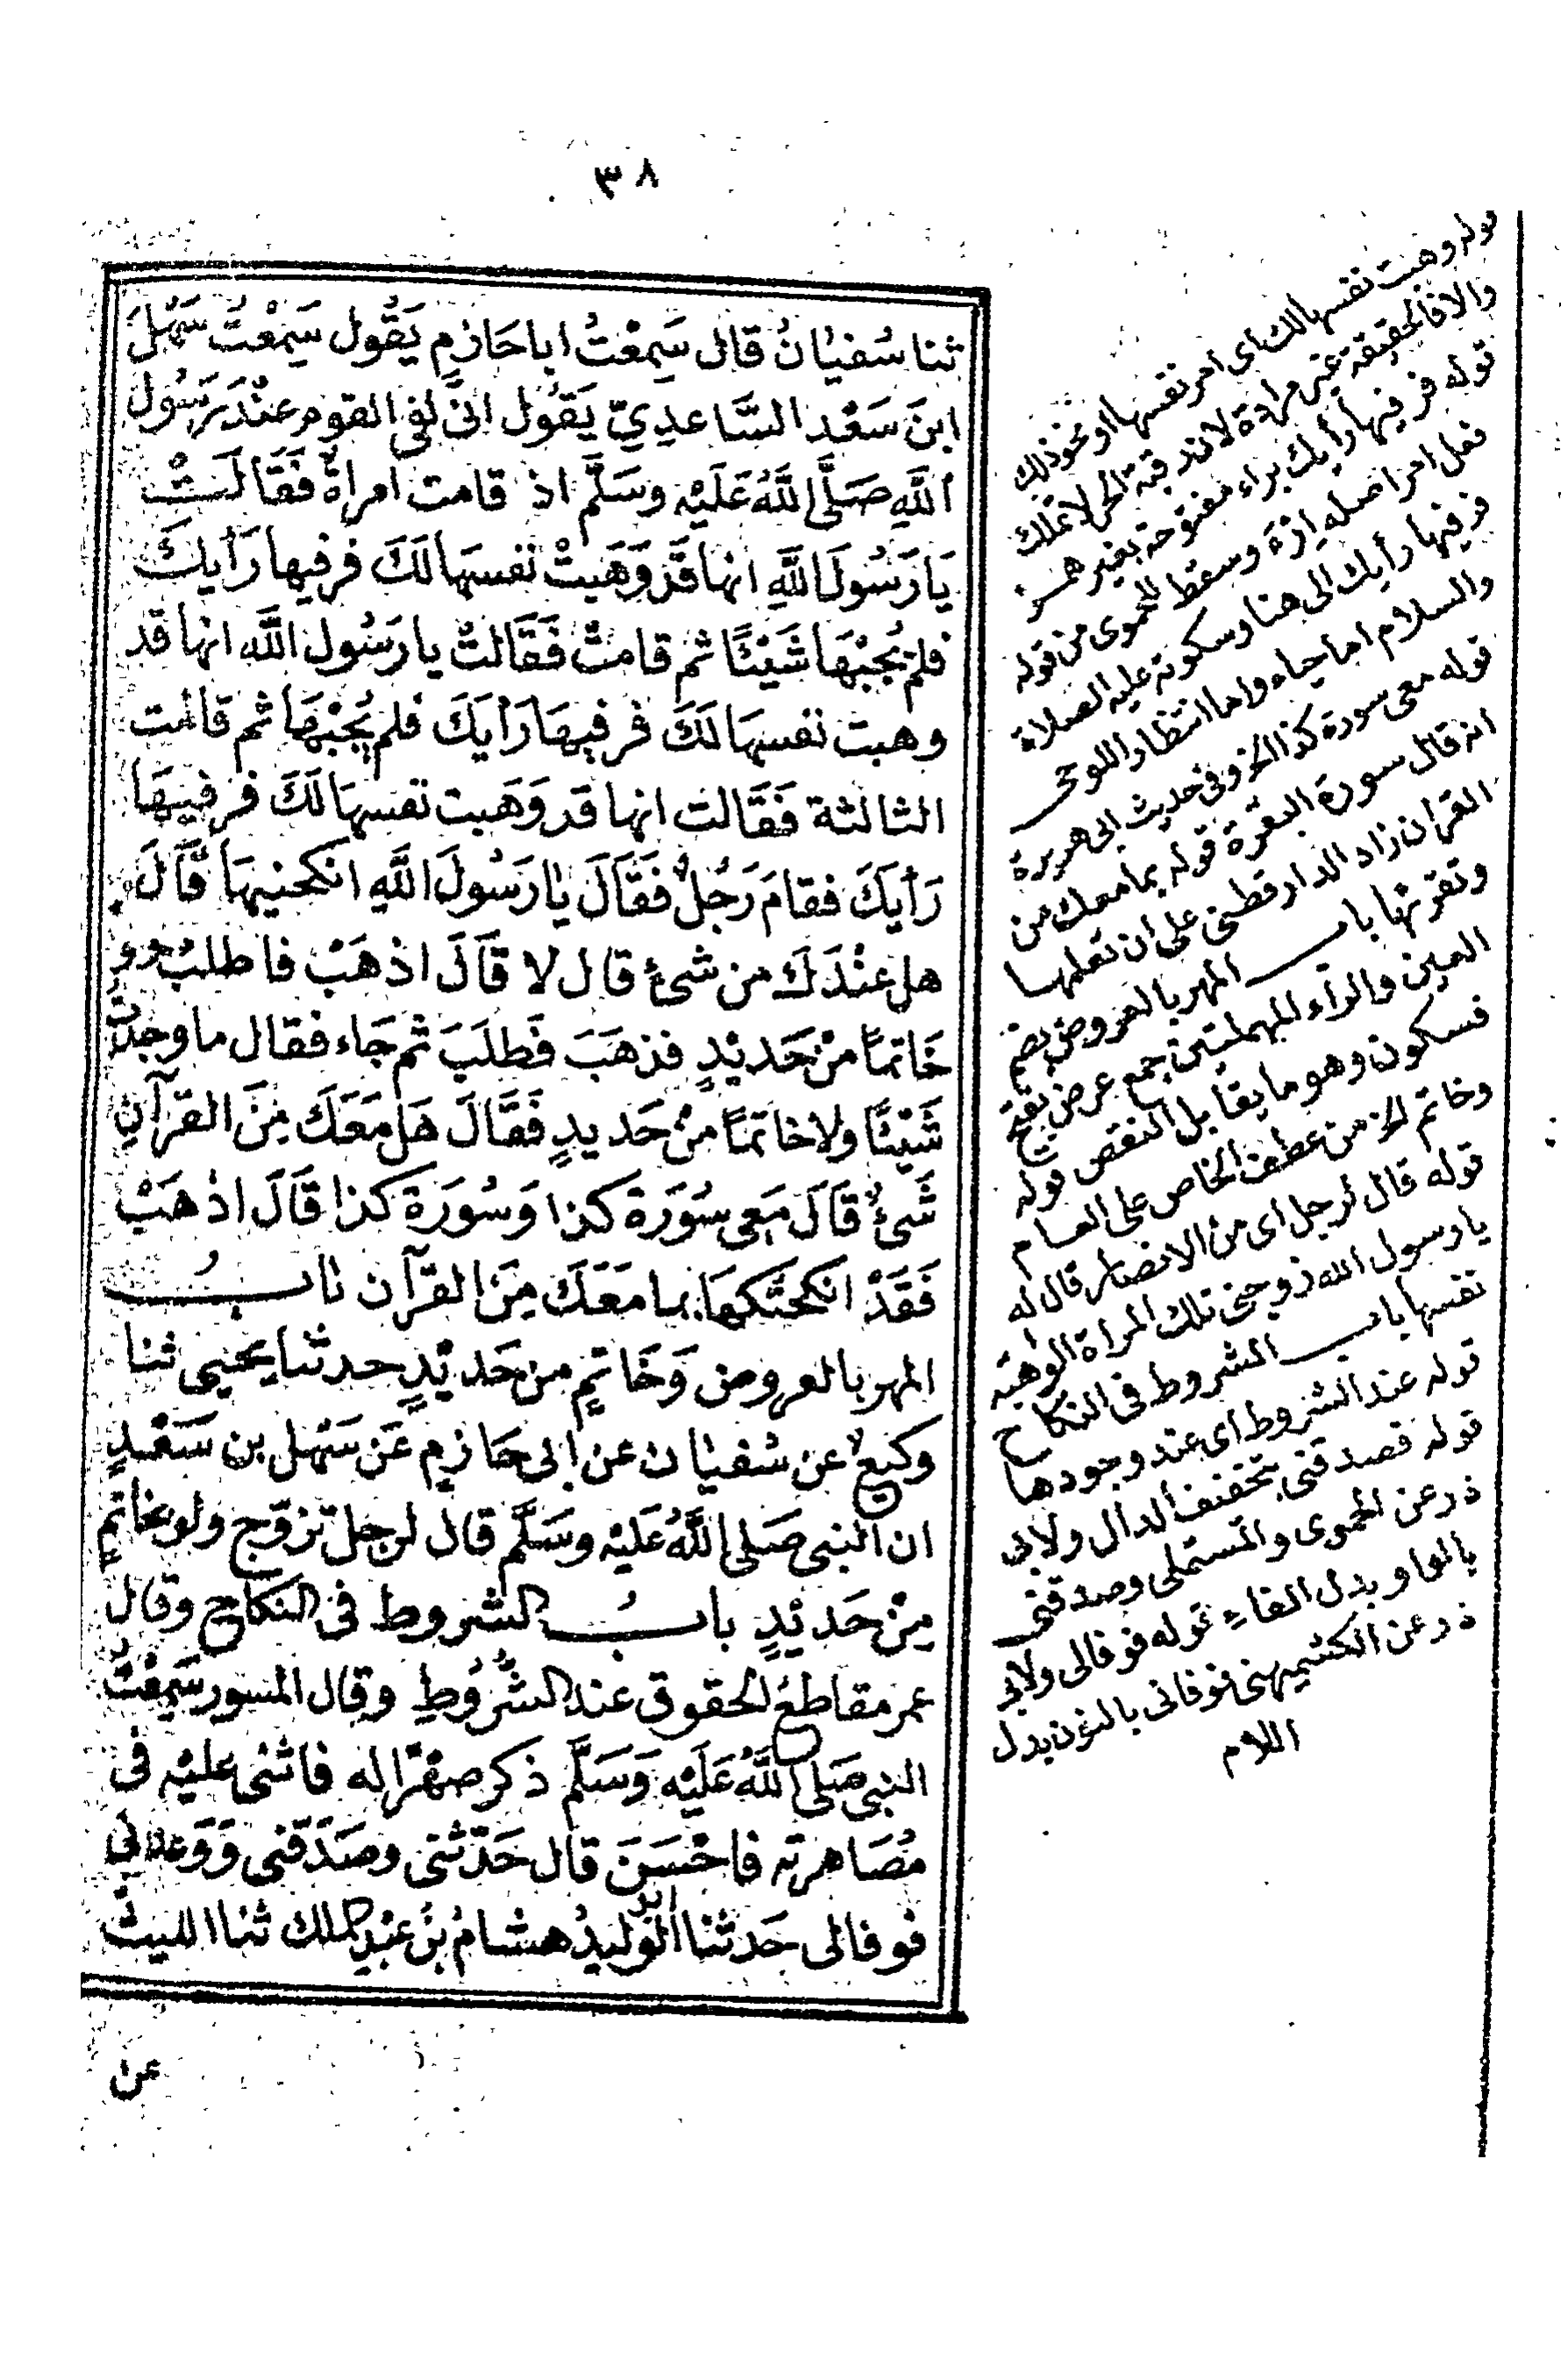 ٣٨
ثنا سُفيٰانُ قال سَمِعْتُ ابا حَازِمٍ يَقُول سَمِعْتُ سَهْلَ
ابنَ سَعْد السَّاعدِيّ يَقُول انّى لفى القوم عنْدَ رَسُول
اللَّهِ صَلَّى اللَّهُ عَلَيْه وسَلَّم اذ قامت امراةٌ فَقَالَتْ
يَا رَسُولَ اللَّهِ انها قَد وَهَبتْ نفسهَا لَكَ فر فيها رَأيكَ
فلم يُجبْهَا شَيْئًا ثم قامتْ فَقَالتْ يا رَسُول اللَّه انها قد
وهبت نفسهَا لَكَ فر فيهَا رَأيَكَ فلم يُجِبْهَا ثم قامت
الثالثة فَقَالت انها قد وَهَبت نفسهَا لَكَ فر فيهَا
رَأيَكَ فقامَ رَجُلٌ فَقَالَ يا رَسُولَ اللَّهِ انكحنيهَا قَالَ
هل عنْدَكَ من شئٍ قال لا قَالَ اذهَبْ فاطلبْ ولو
خَاتمًا منْ حَديْدٍ فذهَبَ فَطلَبَ ثم جَاء فقال ما وجدْتُ
شَيْئًا ولا خاتمًا منْ حَديدٍ فَقَالَ هَل مَعَكَ مِنَ القرآنِ
شَئٌ قَالَ مَعِى سُوَرَة كذا وَسُورَة كذا قَالَ اذهَبْ
فَقَدْ انكحتكهَا بما مَعَكَ مِنَ القرآن بابُ
المهر بالعروض وَخَاتمٍ من حَديْدٍ حدثنا يحيى ثنا
وكيع عن سُفيٰان عن ابى حَازِمٍ عَن سَهْل بن سَعْدٍ
ان النبى صَلى اللَّهُ عَلَيْه وسَلَّم قال لرجل تزوّج ولو بخاتمٍ
مِنْ حَديْدٍ بابُ الشروط فى النكاح وقال
عمر مقاطعُ الحقوق عند الشُّرُوطِ وقال المسور سَمِعْتُ
النبى صَلى اللَّهُ عَلَيْه وَسَلَّم ذكر صهْرًا له فاثنى عليْه فى
مُصَاهرته فاحْسَنَ قال حَدّثنى وصَدَقنى وَوَعدنى
فوفالى حَدثنا ابو الوليدُ هشامُ بنُ عَبْدِ الملك ثنا الليثُ
عن
قوله وهبت نفسها لك اى امر نفسها او نحو ذلك
والا فالحقيقة غير مرادة لان رقبة الحر لا تملك
قوله فر فيها رأيك براء مفتوحة بغير همز
فعل امر اصله ارْءَ وسقط للحموى من قوله
فر فيها رأيك الى هنا وسكوته عليه الصلاة
والسلام اما حياء واما انتظارا للوحى
قوله معى سورة كذا الخ وفى حديث ابى هريرة
انه قال سورة البقرة قوله بما معك من
القران زاد الدارقطنى على ان تعلمها
وتقرئها باب المهر بالعروض بضم
العين والراء المهملتين جمع عرض بفتح
فسكون وهو ما يقابل النقص قوله
وخاتم الخ من عطف الخاص على العام
قوله قال لرجل اى من الانصار قال له
يا رسول الله زوجنى تلك المراة الواهبة
نفسها باب الشروط فى النكاح
قوله عند الشروط اى عند وجودها
قوله فصدقنى بتخفيف الدال ولابى
ذر عن الحموى والمستملى وصدقنى
بالواو بدل الفاء قوله فوفالى ولابى
ذر عن الكشميهنى فوفانى بالنون بدل
اللام